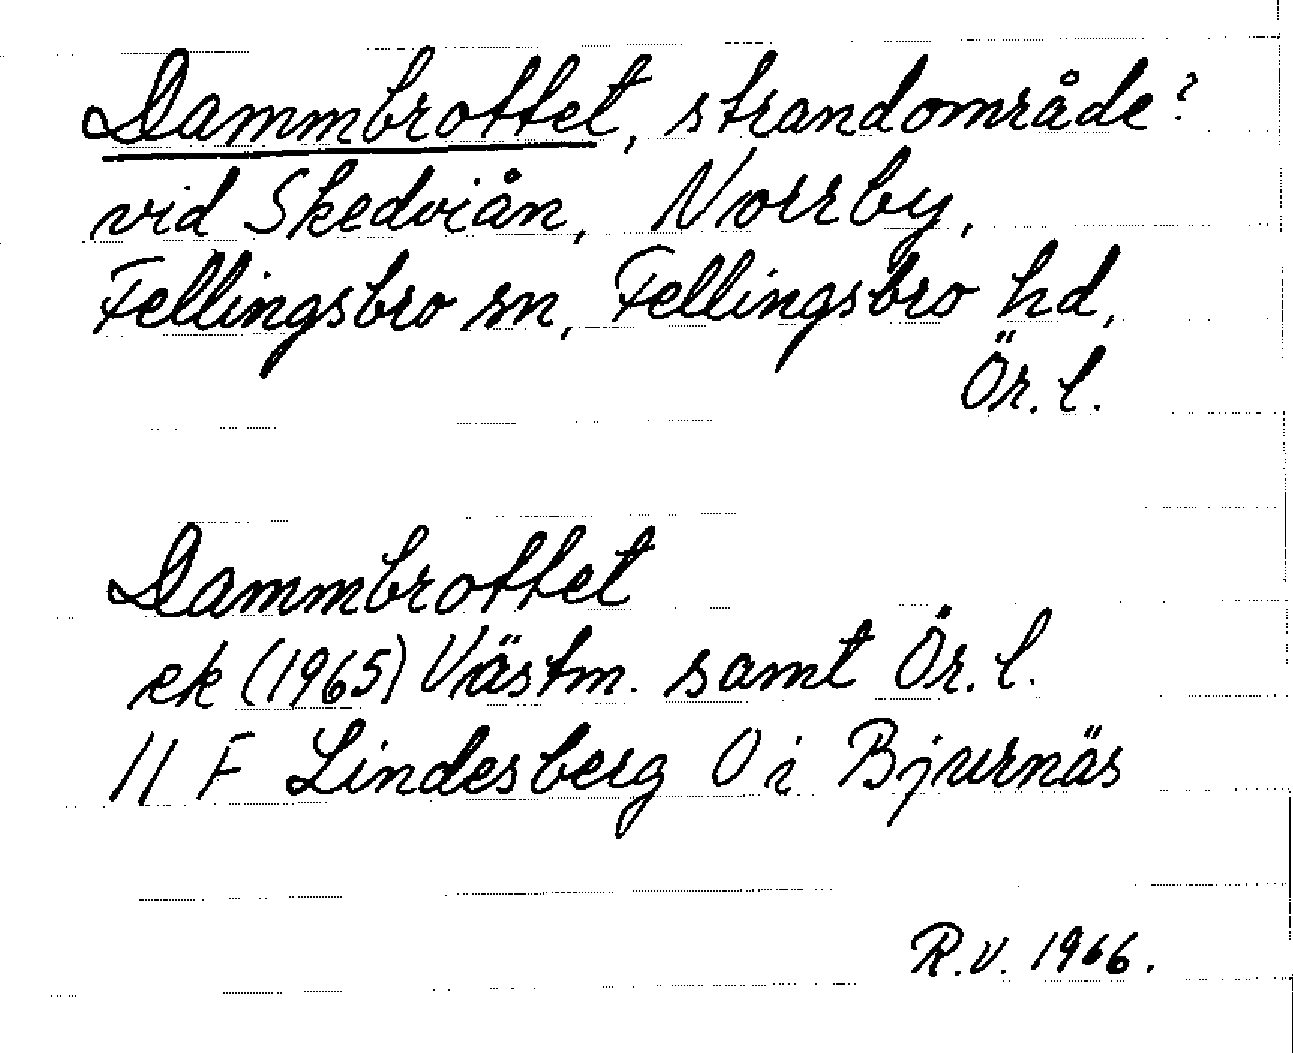 Dammbrottet, strandområde?
vid Skedviån, Norrby,
Fellingsbro sn, Fellingsbro hd,
Ör. l.
Dammbrottet
ek (1965) Västm. samt Ör. l.
11 F Lindesberg 0 i Bjurnäs
R.V. 1966.